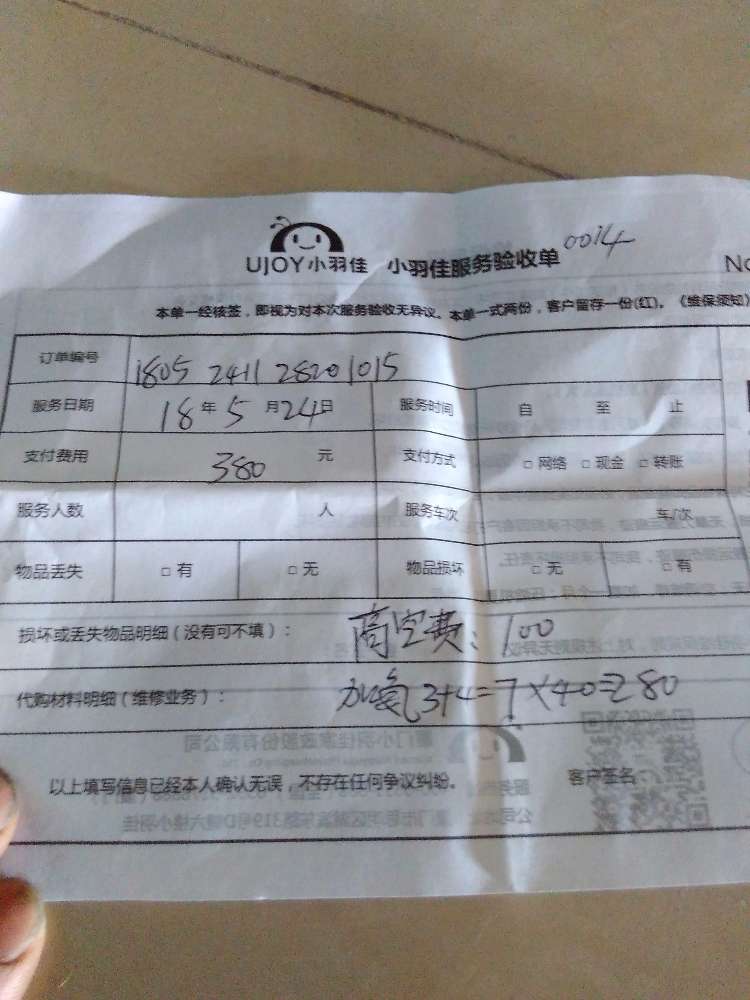 UJOY小羽佳 小羽佳服务验收单 0014
No
本单一经核签，即视为对本次服务验收无异议。本单一式两份，客户留存一份(红)。《维保须知》
订单编号 1805 2411 28201015
服务日期 18年5月24日 服务时间 自 至 止
支付费用 380 元 支付方式 □网络 □现金 □转账
服务人数 人 服务车次 车/次
物品丢失 □有 □无 物品损坏 □无 □有
损坏或丢失物品明细（没有可不填）： 高空费：100
代购材料明细（维修业务）： 加氨3+4=7×40=280
以上填写信息已经本人确认无误，不存在任何争议纠纷。 客户签名